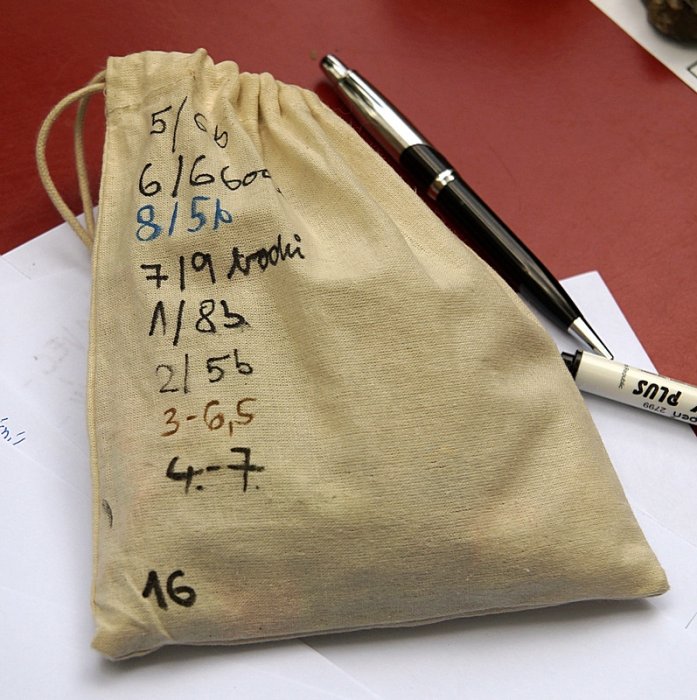 5/8b
6/6 boq
8/5b
7/9 bodů
1/8b
2/5b
3-6,5
4.-7.
16
PLUS
pen 2799